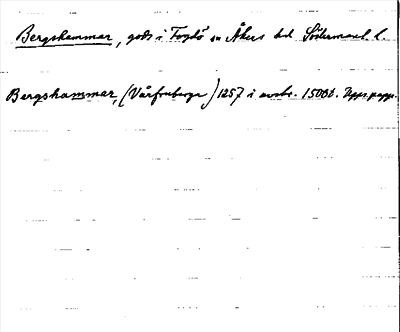 Bergshammar, gods i Fogdö sn Åkers hd Södermanl. l.
Bergshammar, (Vårfruberga) 1257 i avskr. 1500t. Upps. papp.